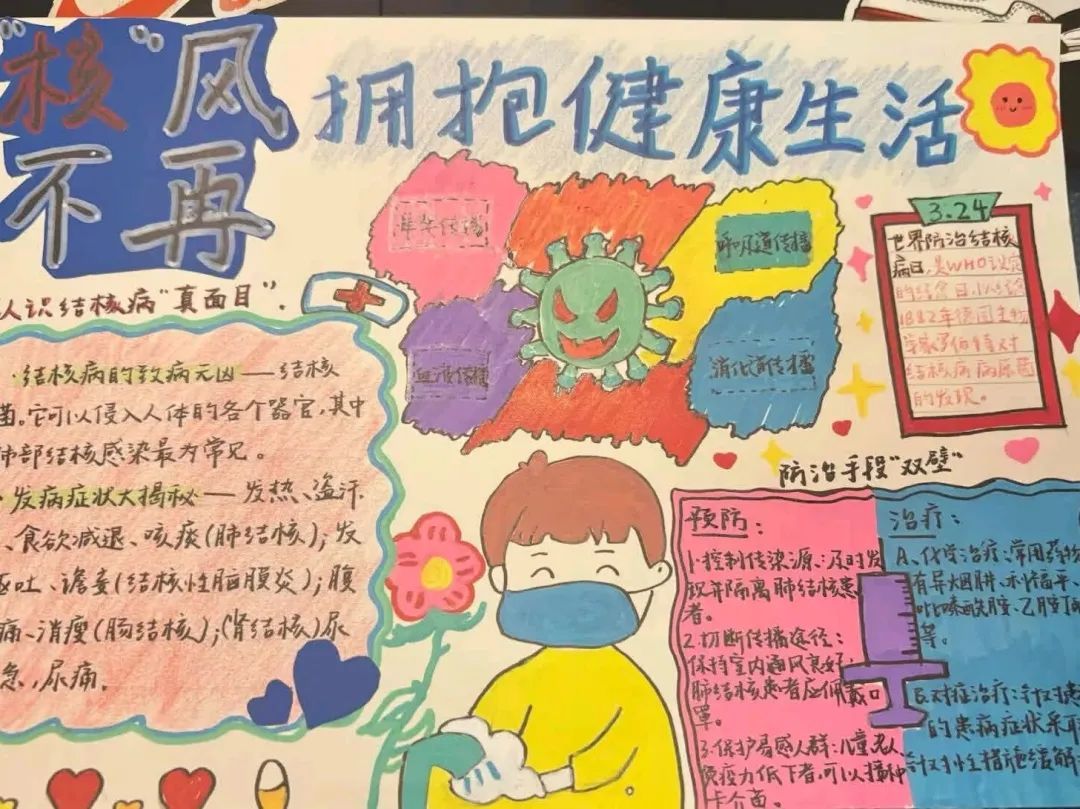 “核”风
不再
拥抱健康生活
认识结核病“真面目”.
·结核病的致病元凶——结核
菌。它可以侵入人体的各个器官,其中
肺部结核感染最为常见。
·发病症状大揭秘——发热、盗汗
、食欲减退、咳痰(肺结核);发
呕吐、谵妄(结核性脑膜炎);腹
痛、消瘦(肠结核);(肾结核)尿
急,尿痛。
母婴传播
呼吸道传播
血液传播
消化道传播
3.24
世界防治结核
病日,是WHO设定
的纪念日,以纪念
1882年德国微生物
学家罗伯特 对
结核病病原菌
的发现。
防治手段“双壁”
预防:
1.控制传染源:及时发
现并隔离肺结核患
者。
2.切断传播途径:
保持室内通风良好,
肺结核患者应佩戴口
罩。
3.保护易感人群:儿童、老人、
免疫力低下者,可以接种
卡介苗。
治疗:
A、化学治疗:常用药物
有异烟肼、利福平、
吡嗪酰胺、乙胺丁醇
等。
B.对症治疗:针对患
的患病症状采取
针对性措施缓解